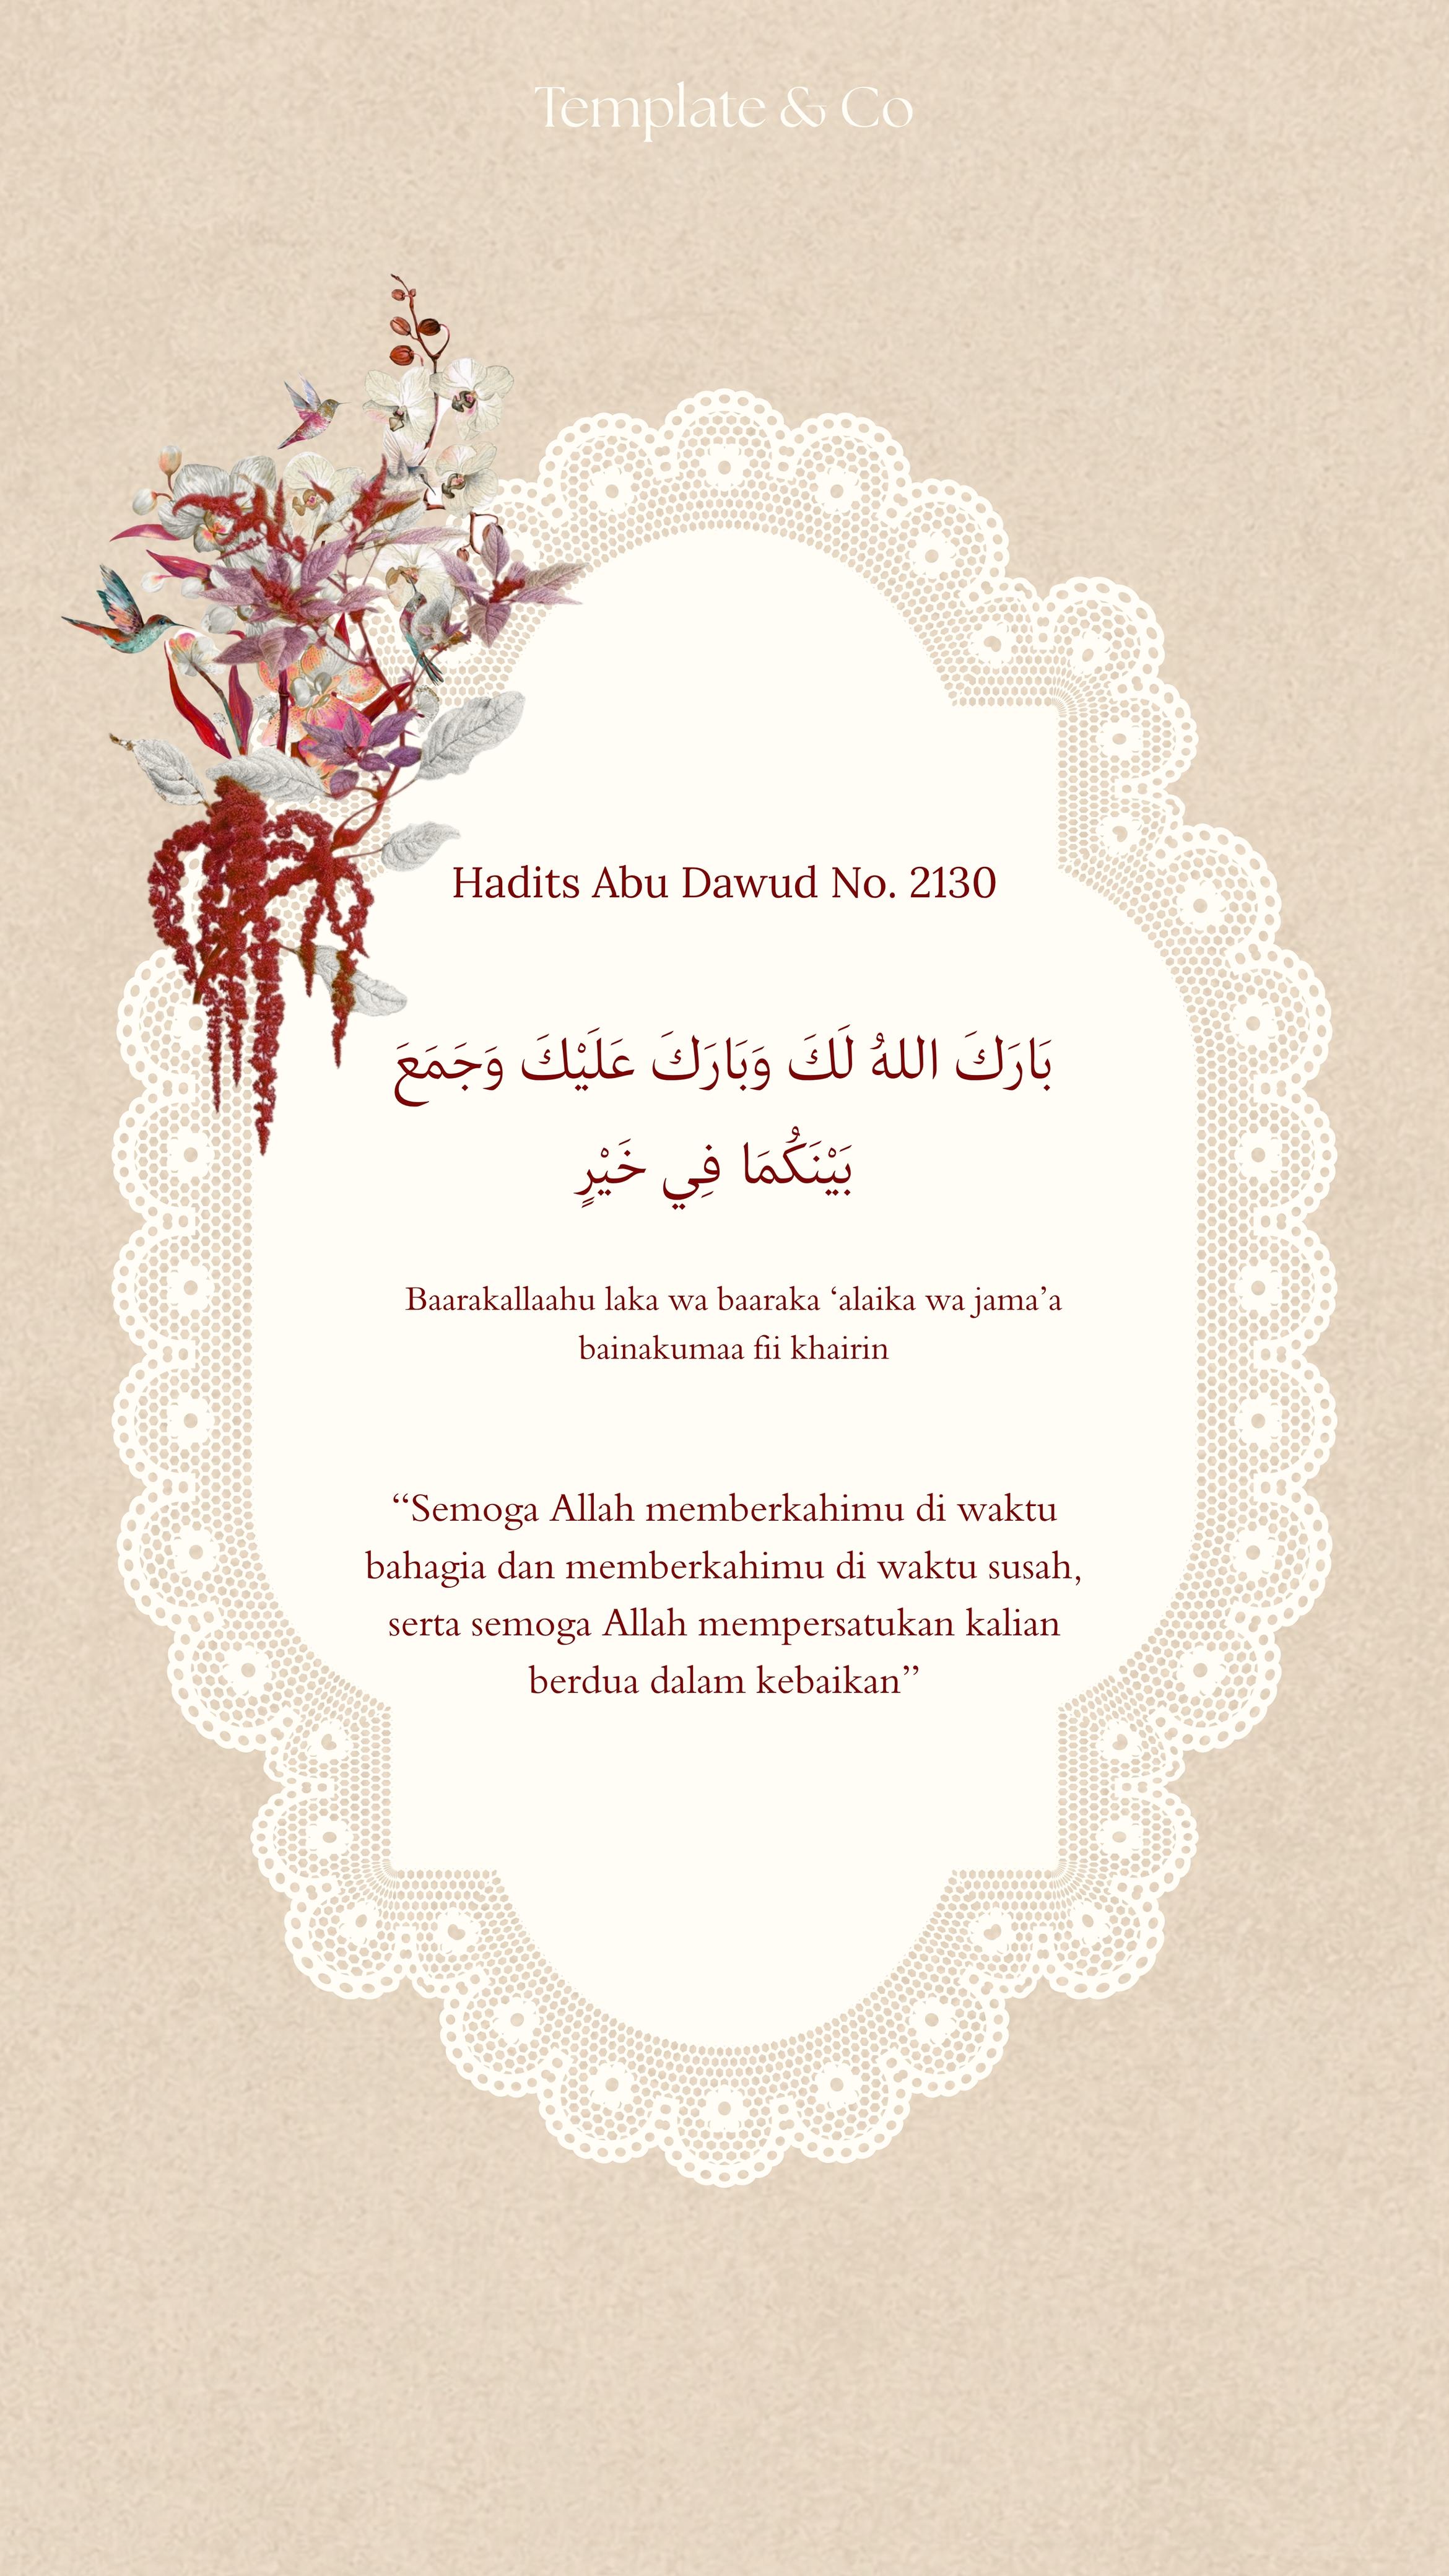 Template & Co
Hadits Abu Dawud No. 2130
بَارَكَ اللهُ لَكَ وَبَارَكَ عَلَيْكَ وَجَمَعَ
بَيْنَكُمَا فِي خَيْرٍ
Baarakallaahu laka wa baaraka ‘alaika wa jama’a
bainakumaa fii khairin
“Semoga Allah memberkahimu di waktu
bahagia dan memberkahimu di waktu susah,
serta semoga Allah mempersatukan kalian
berdua dalam kebaikan”